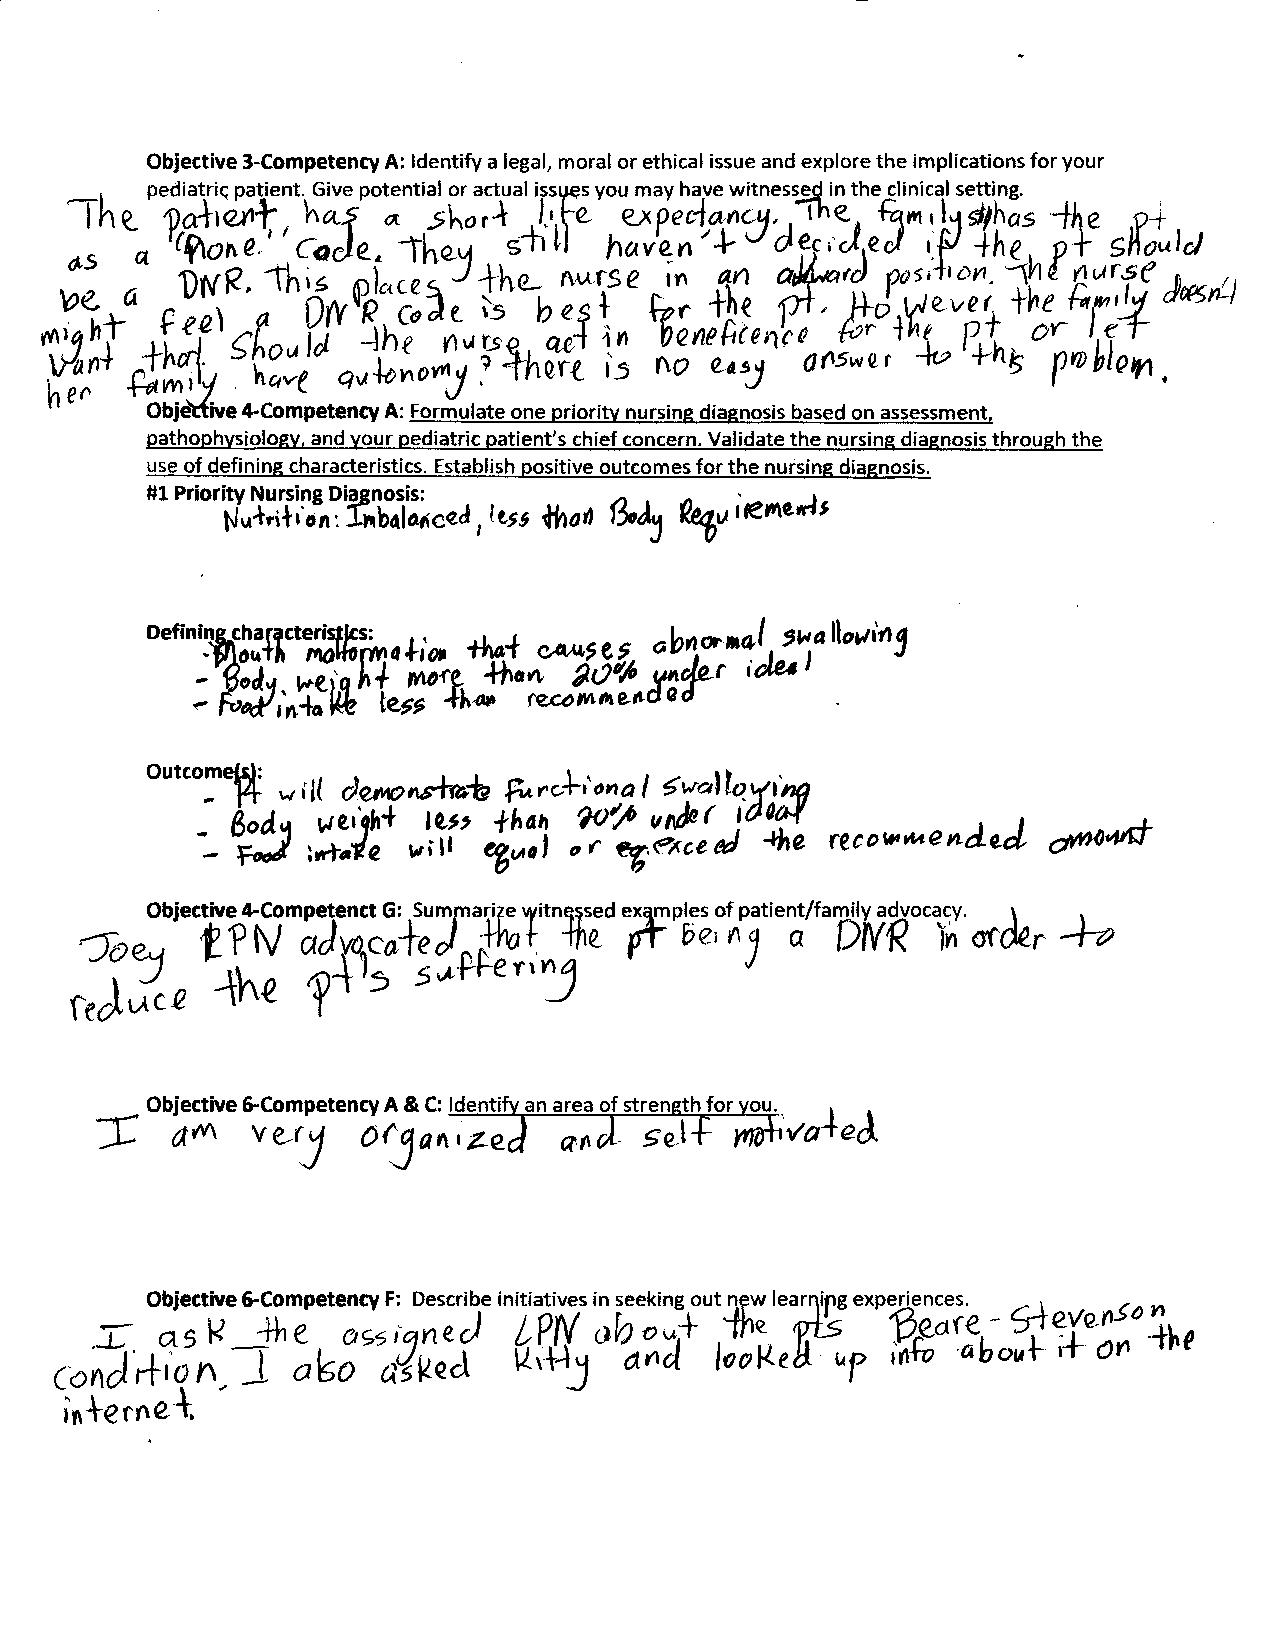 Objective 3-Competency A: Identify a legal, moral or ethical issue and explore the implications for your
pediatric patient. Give potential or actual issues you may have witnessed in the clinical setting.
The patient has a short life expectancy. The family has the pt
as a "Phone" Code. They still haven't decided if the pt should
be a DNR. This places the nurse in an awkward position. The nurse
might feel a DNR code is best for the pt. However, the family doesn't
want that. Should the nurse act in beneficence for the pt or let
her family have autonomy? there is no easy answer to this problem.
Objective 4-Competency A: Formulate one priority nursing diagnosis based on assessment,
pathophysiology, and your pediatric patient's chief concern. Validate the nursing diagnosis through the
use of defining characteristics. Establish positive outcomes for the nursing diagnosis.
#1 Priority Nursing Diagnosis:
Nutrition: Imbalanced, less than Body Requirements
Defining characteristics:
- Mouth malformation that causes abnormal swallowing
- Body weight more than 20% under ideal
- Food intake less than recommended
Outcome(s):
- Pt will demonstrate functional swallowing
- Body weight less than 20% under ideal
- Food intake will equal or exceed the recommended amount
Objective 4-Competenct G: Summarize witnessed examples of patient/family advocacy.
Joey LPN advocated that the pt being a DNR in order to
reduce the pt's suffering
Objective 6-Competency A & C: Identify an area of strength for you.
I am very organized and self motivated
Objective 6-Competency F: Describe initiatives in seeking out new learning experiences.
I ask the assigned LPN about the pts Beare-Stevenson
condition. I also asked Kitty and looked up info about it on the
internet.